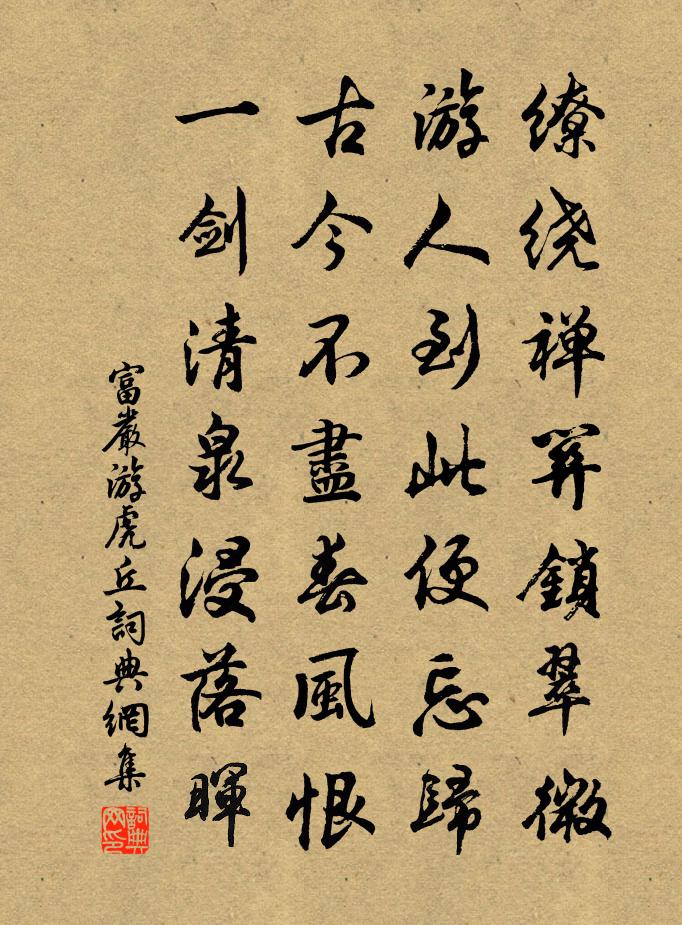 繚绕禅関鎖翠微
游人到此便忘歸
古今不盡春風恨
一剑清泉浸落暉
富嚴游虎丘詞典網集
詞典网印